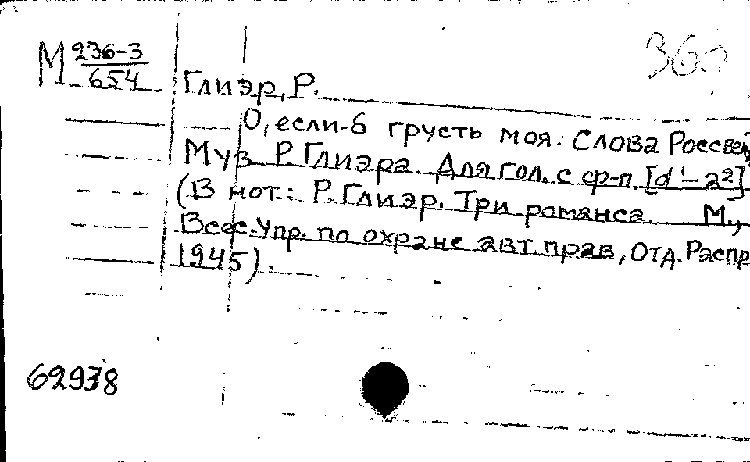 М 236-3
654
Глиэр, Р.
О, если-б грусть моя. Слова
Муз. Р. Глиэра. Для гол. с ср-п. [d¹-a²]
(В нот.: Р. Глиэр. Три романса. М.,
Всес. Упр. по охране авт. прав, Отд. Распр
1945).
62938